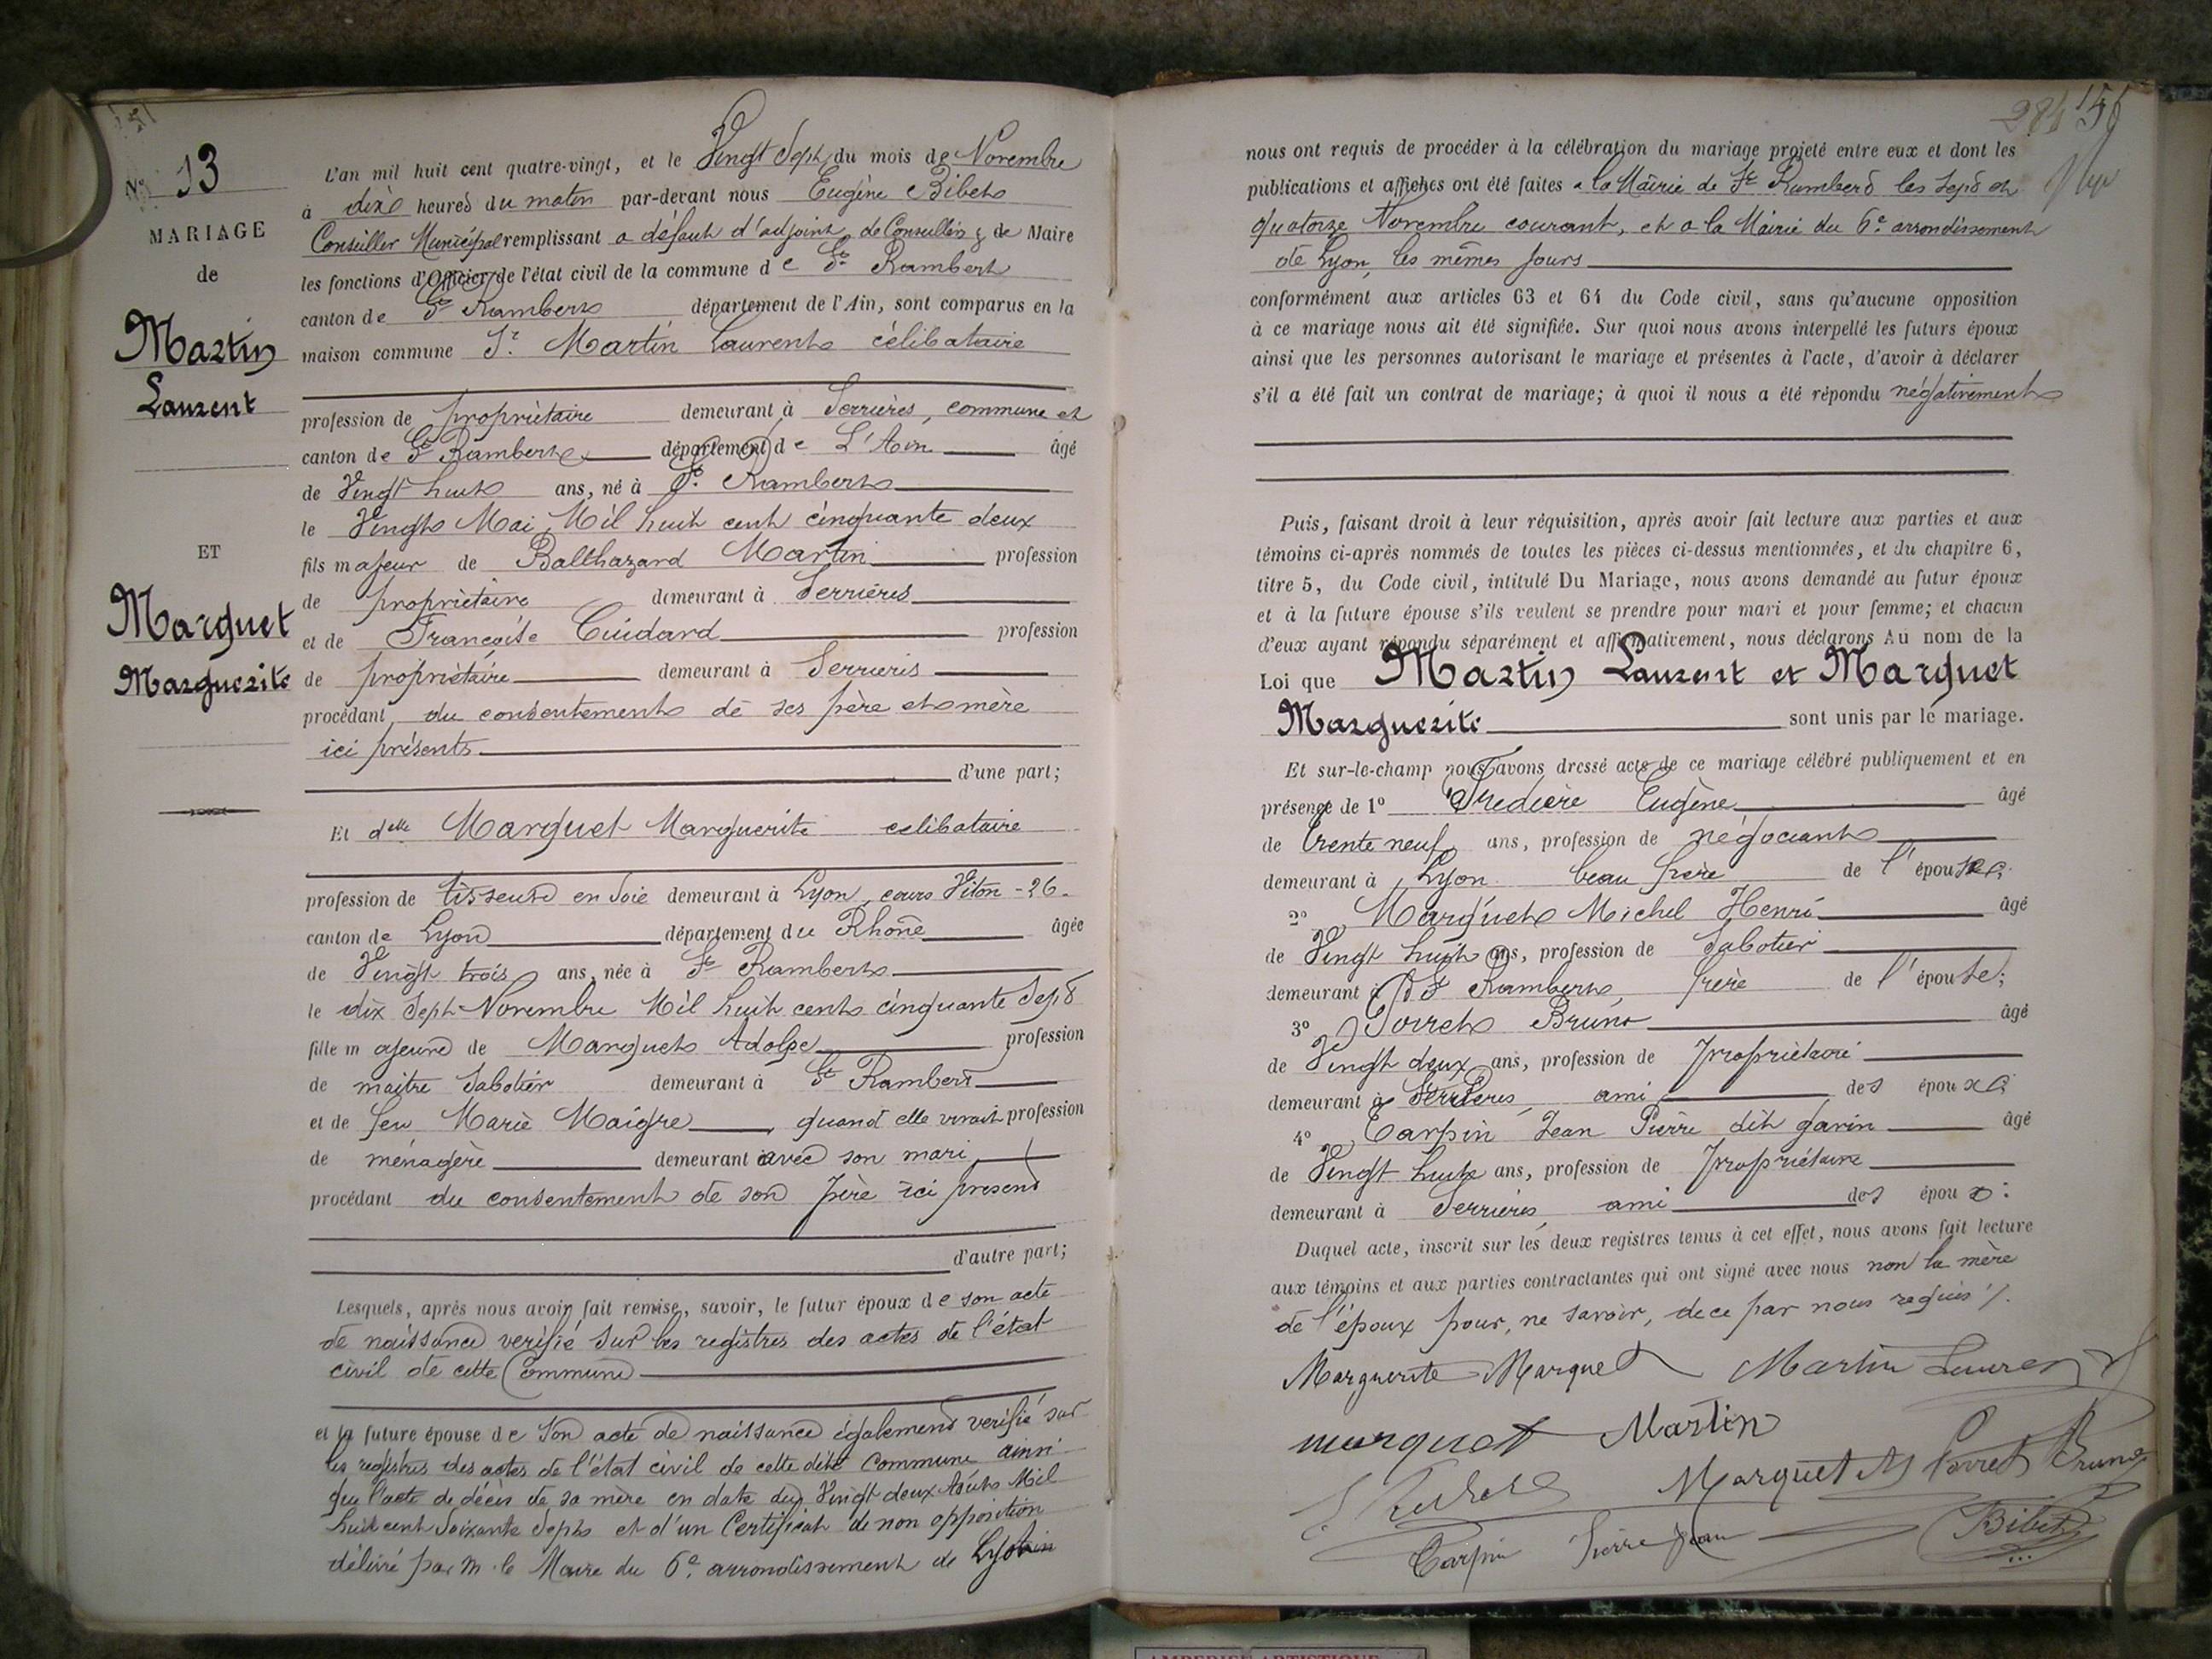 N° 13
MARIAGE
de
Martin
Laurent
ET
Marguet
Marguerite
L'an mil huit cent quatre-vingt, et le Vingt Sept du mois de Novembre
à dix heures du matin par-devant nous Eugène Bibet
Conseiller Municipal remplissant a défaut d'adjoint, de Conseillers & de Maire
les fonctions d'Officier de l'état civil de la commune de St Rambert
canton de St Rambert département de l'Ain, sont comparus en la
maison commune Sr. Martin Laurent célibataire
profession de propriètaire demeurant à Serrières, commune et
canton de St Rambert département de L'Ain âgé
de Vingt huit ans, né à St. Rambert
le Vingt Mai Mil huit cent cinquante deux
fils majeur de Balthazard Martin profession
de propriètaire demeurant à Serrières
et de Françoise Cuidard profession
de propriètaire demeurant à Serrieris
procédant du consentement de ses père et mère
ici présents
d'une part;
Et delle Marguet Marguerite celibataire
profession de tisseuse en Soie demeurant à Lyon, cours Viton - 26 -
canton de Lyon département du Rhône âgée
de Vingt trois ans, née à St Rambert
le dix Sept Novembre Mil huit cent cinquante Sept
fille majeure de Marguet Adolpe profession
de maitre Sabotier demeurant à St Rambert
et de feu Marie Maigre, quand elle vivait profession
de ménagère demeurant avec son mari
procédant du consentement de son père ici present
d'autre part;
Lesquels, après nous avoir fait remise, savoir, le futur époux de son acte
de naissance verifié sur les registres des actes de l'état
civil de cette Commune
et la future épouse de Son acte de naissance également verifié sur
les registres des actes de l'état civil de cette dite Commune ainsi
que l'acte de décès de sa mère en date du Vingt deux Août Mil
huit cent Soixante Sept et d'un Certificat de non opposition
délivré par M. le Maire du 6e. arrondissement de Lyon
284 156
nous ont requis de procéder à la célébration du mariage projeté entre eux et dont les
publications et affiches ont été faites a la Mairie de St Rambert les Sept et
quatorze Novembre courant, et a la Mairie du 6e. arrondissement
de Lyon, les mêmes jours
conformément aux articles 63 et 64 du Code civil, sans qu'aucune opposition
à ce mariage nous ait été signifiée. Sur quoi nous avons interpellé les futurs époux
ainsi que les personnes autorisant le mariage et présentes à l'acte, d'avoir à déclarer
s'il a été fait un contrat de mariage; à quoi il nous a été répondu négativement
Puis, faisant droit à leur réquisition, après avoir fait lecture aux parties et aux
témoins ci-après nommés de toutes les pièces ci-dessus mentionnées, et du chapitre 6,
titre 5, du Code civil, intitulé Du Mariage, nous avons demandé au futur époux
et à la future épouse s'ils veulent se prendre pour mari et pour femme; et chacun
d'eux ayant répondu séparément et affirmativement, nous déclarons Au nom de la
Loi que Martin Laurent et Marguet
Marguerite sont unis par le mariage.
Et sur-le-champ nous avons dressé acte de ce mariage célébré publiquement et en
présence de 1° Eugène âgé
de trente neuf ans, profession de négociant
demeurant à Lyon beau frère de l'épouse;
2° Marguet Michel Henri âgé
de Vingt huit ans, profession de Sabotier
demeurant à St Rambert, frère de l'épouse;
3° Porret Bruno âgé
de Vingt deux ans, profession de Propriètaire
demeurant à Serrieres, ami des époux;
4° Carpin Jean Pierre dit garin âgé
de Vingt huit ans, profession de Propriétaire
demeurant à Serrieres, ami des époux:
Duquel acte, inscrit sur les deux registres tenus à cet effet, nous avons fait lecture
aux témoins et aux parties contractantes qui ont signé avec nous non la mère
de l'époux pour, ne savoir, de ce par nous requis %.
Marguerite Marguet Martin Laurent
marguet Martin
Marguet M Porret Bruno
Carpin Pierre Jean Bibet